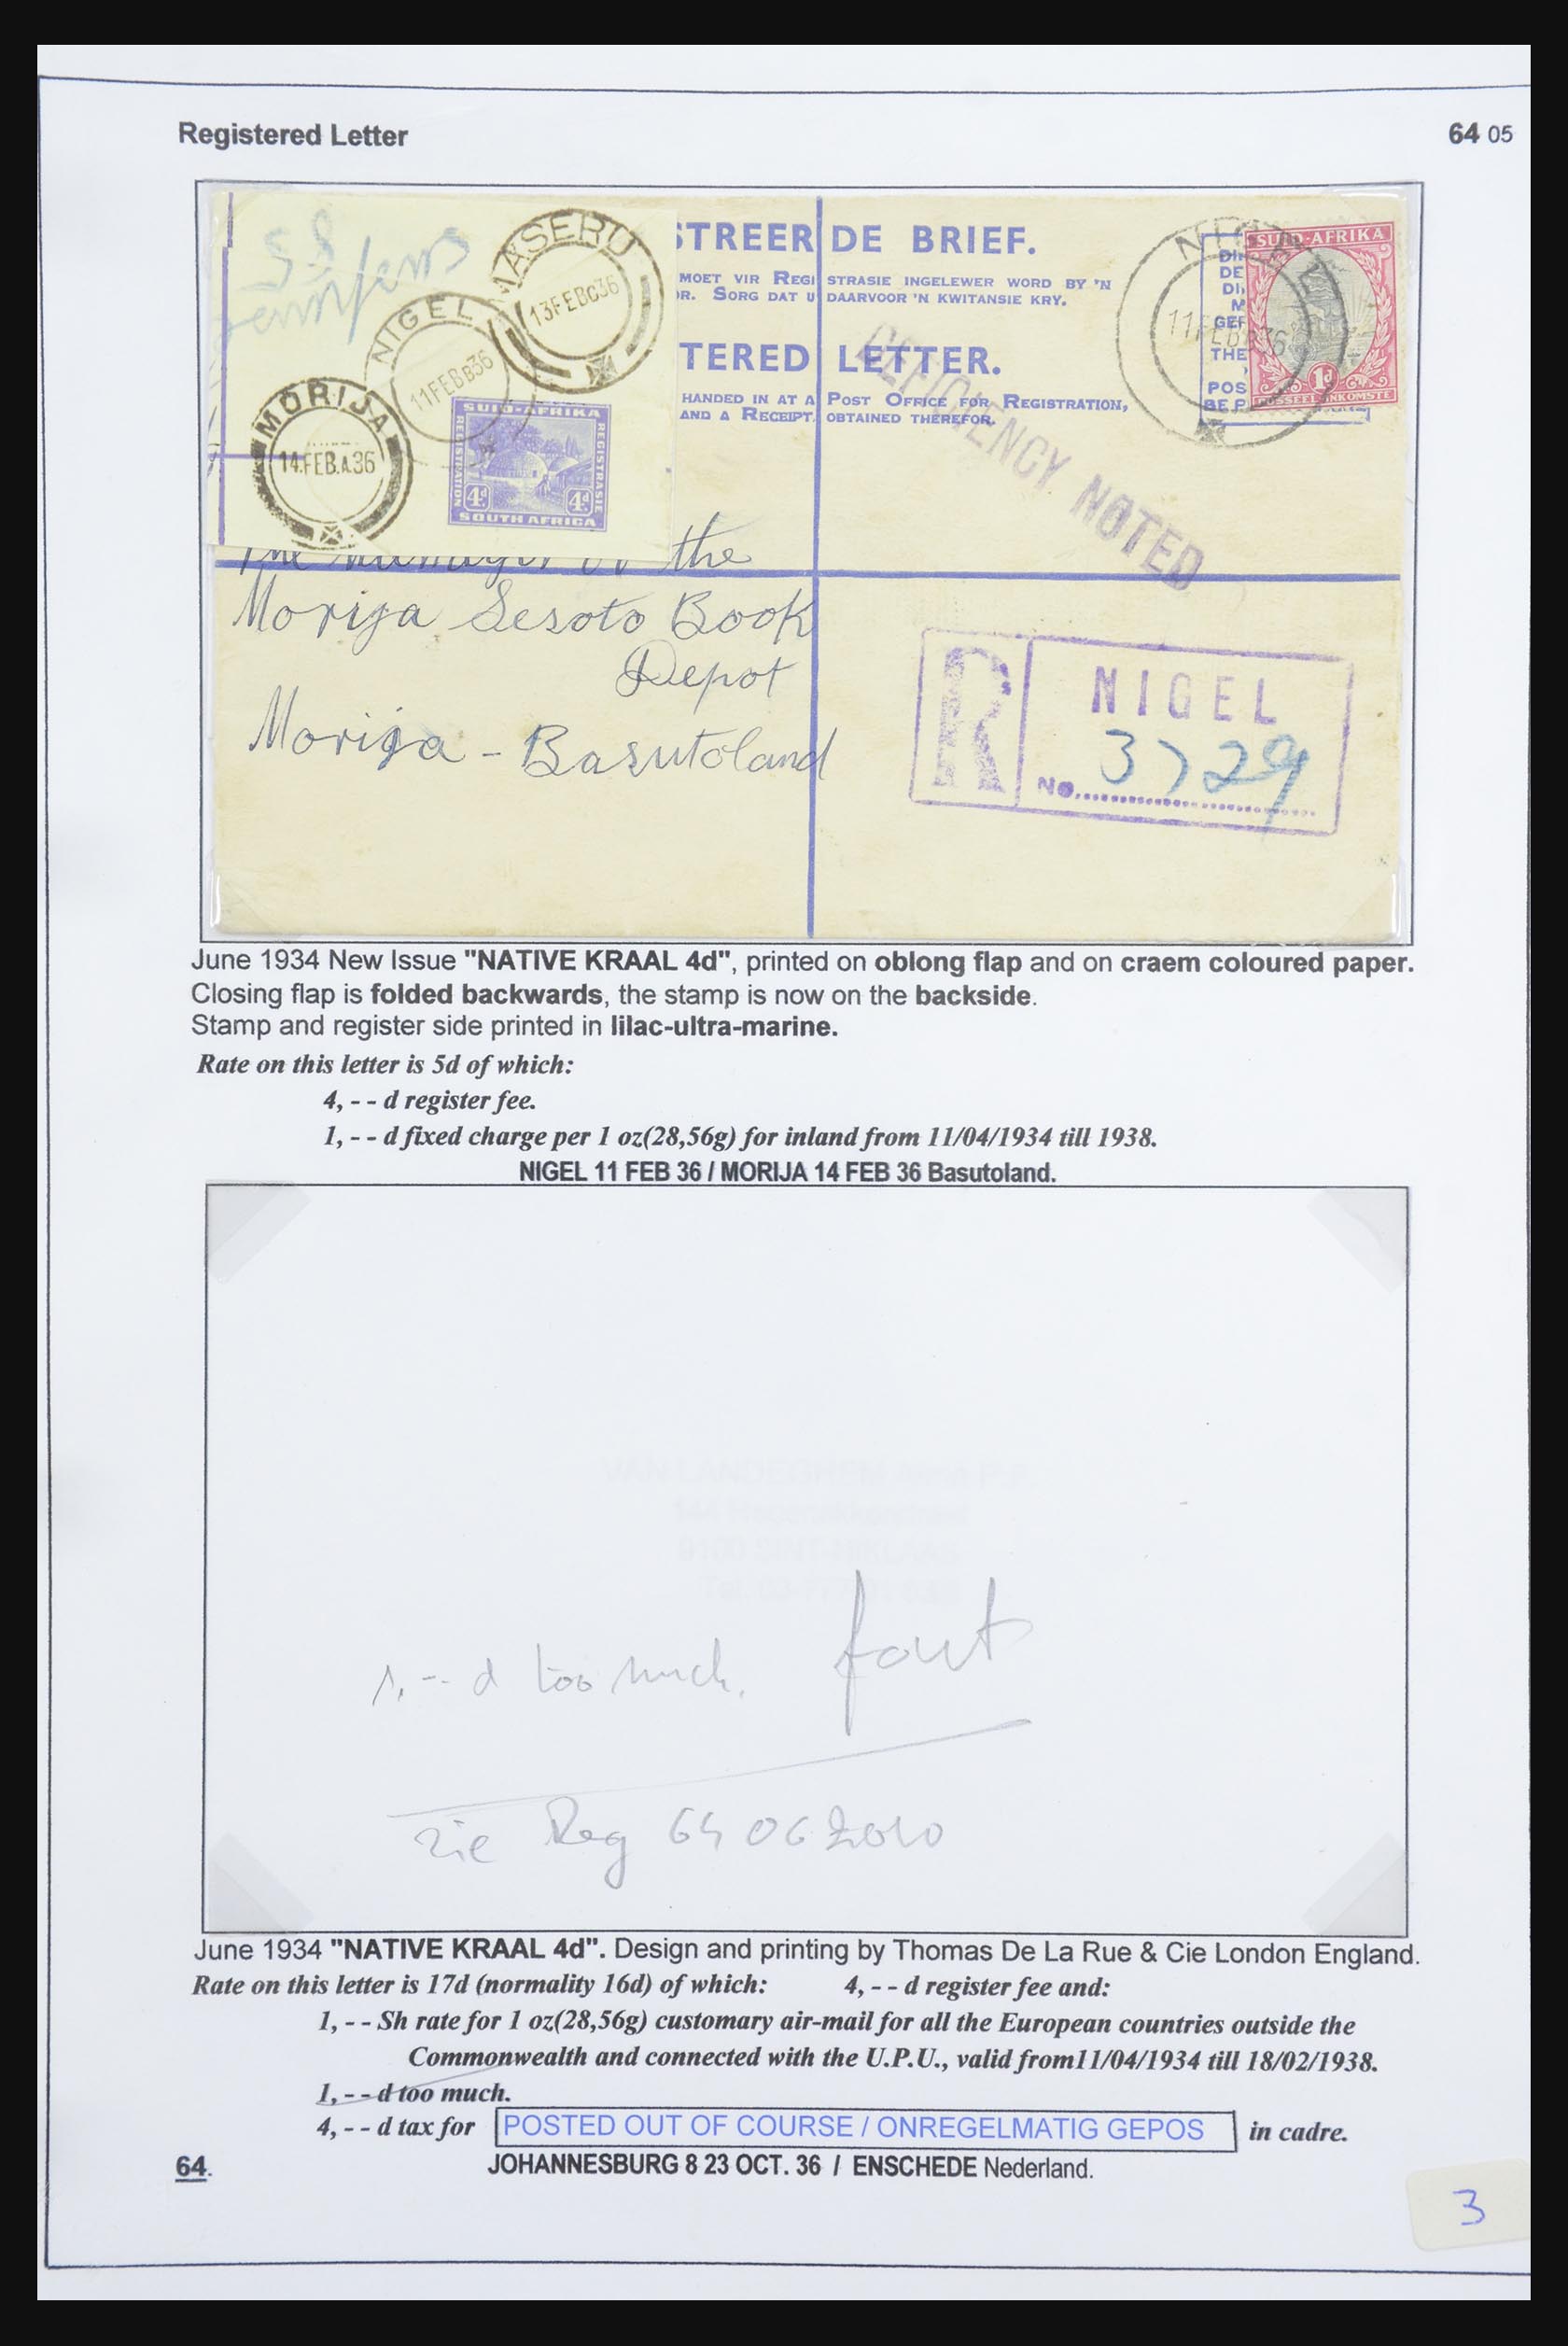 Registered Letter 64 05
STREER DE BRIEF.
MOET VIR REGI STRASIE INGELEWER WORD BY 'N
OR. SORG DAT U DAARVOOR 'N KWITANSIE KRY.
TERED LETTER.
HANDED IN AT A POST OFFICE FOR REGISTRATION,
AND A RECEIPT OBTAINED THEREFOR.
MASERU
13FEBC36
NIGEL
11FEBB36
MORIJA
14.FEB.A.36
SUID-AFRIKA
REGISTRATION
REGISTRASIE
4d 4d
SOUTH AFRICA
DEFICIENCY NOTED
NIGEL
11FEBB36
DE
GEF
THE
POS
BE P
SUID-AFRIKA
1d
POSSEËL INKOMSTE
the
Morija Sesoto Book
Depot
Morija - Basutoland
R NIGEL
No. 3729
June 1934 New Issue "NATIVE KRAAL 4d", printed on oblong flap and on craem coloured paper.
Closing flap is folded backwards, the stamp is now on the backside.
Stamp and register side printed in lilac-ultra-marine.
Rate on this letter is 5d of which:
4, - - d register fee.
1, - - d fixed charge per 1 oz(28,56g) for inland from 11/04/1934 till 1938.
NIGEL 11 FEB 36 / MORIJA 14 FEB 36 Basutoland.
1, -- d too much. fout
zie Reg 64 06 2010
June 1934 "NATIVE KRAAL 4d". Design and printing by Thomas De La Rue & Cie London England.
Rate on this letter is 17d (normality 16d) of which: 4, - - d register fee and:
1, - - Sh rate for 1 oz(28,56g) customary air-mail for all the European countries outside the
Commonwealth and connected with the U.P.U., valid from11/04/1934 till 18/02/1938.
1, - - d too much.
4, - - d tax for POSTED OUT OF COURSE / ONREGELMATIG GEPOS in cadre.
64. JOHANNESBURG 8 23 OCT. 36 / ENSCHEDE Nederland.
3